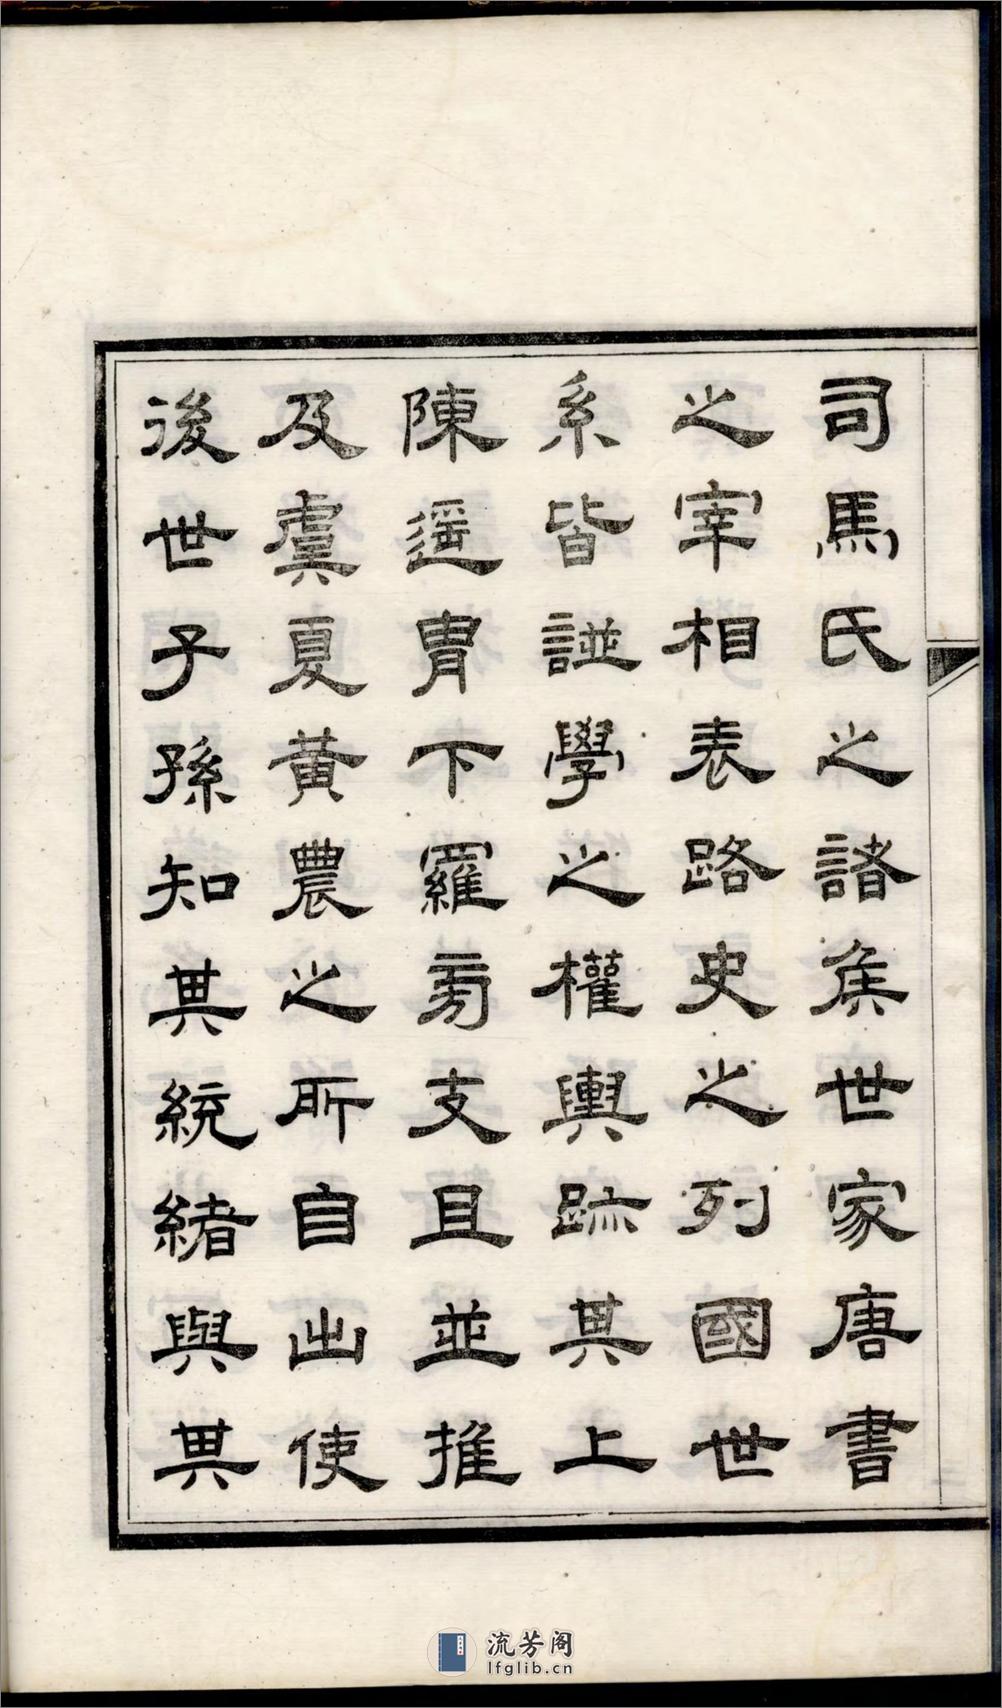 司馬氏之諸矦世家唐書
之宰相表路史之列國世
系皆譜學之權輿跡其上
陳遥冑下羅旁支且並推
及虞夏黃農之所自出使
後世子孫知其統緒與其
流芳阁
lfglib.cn